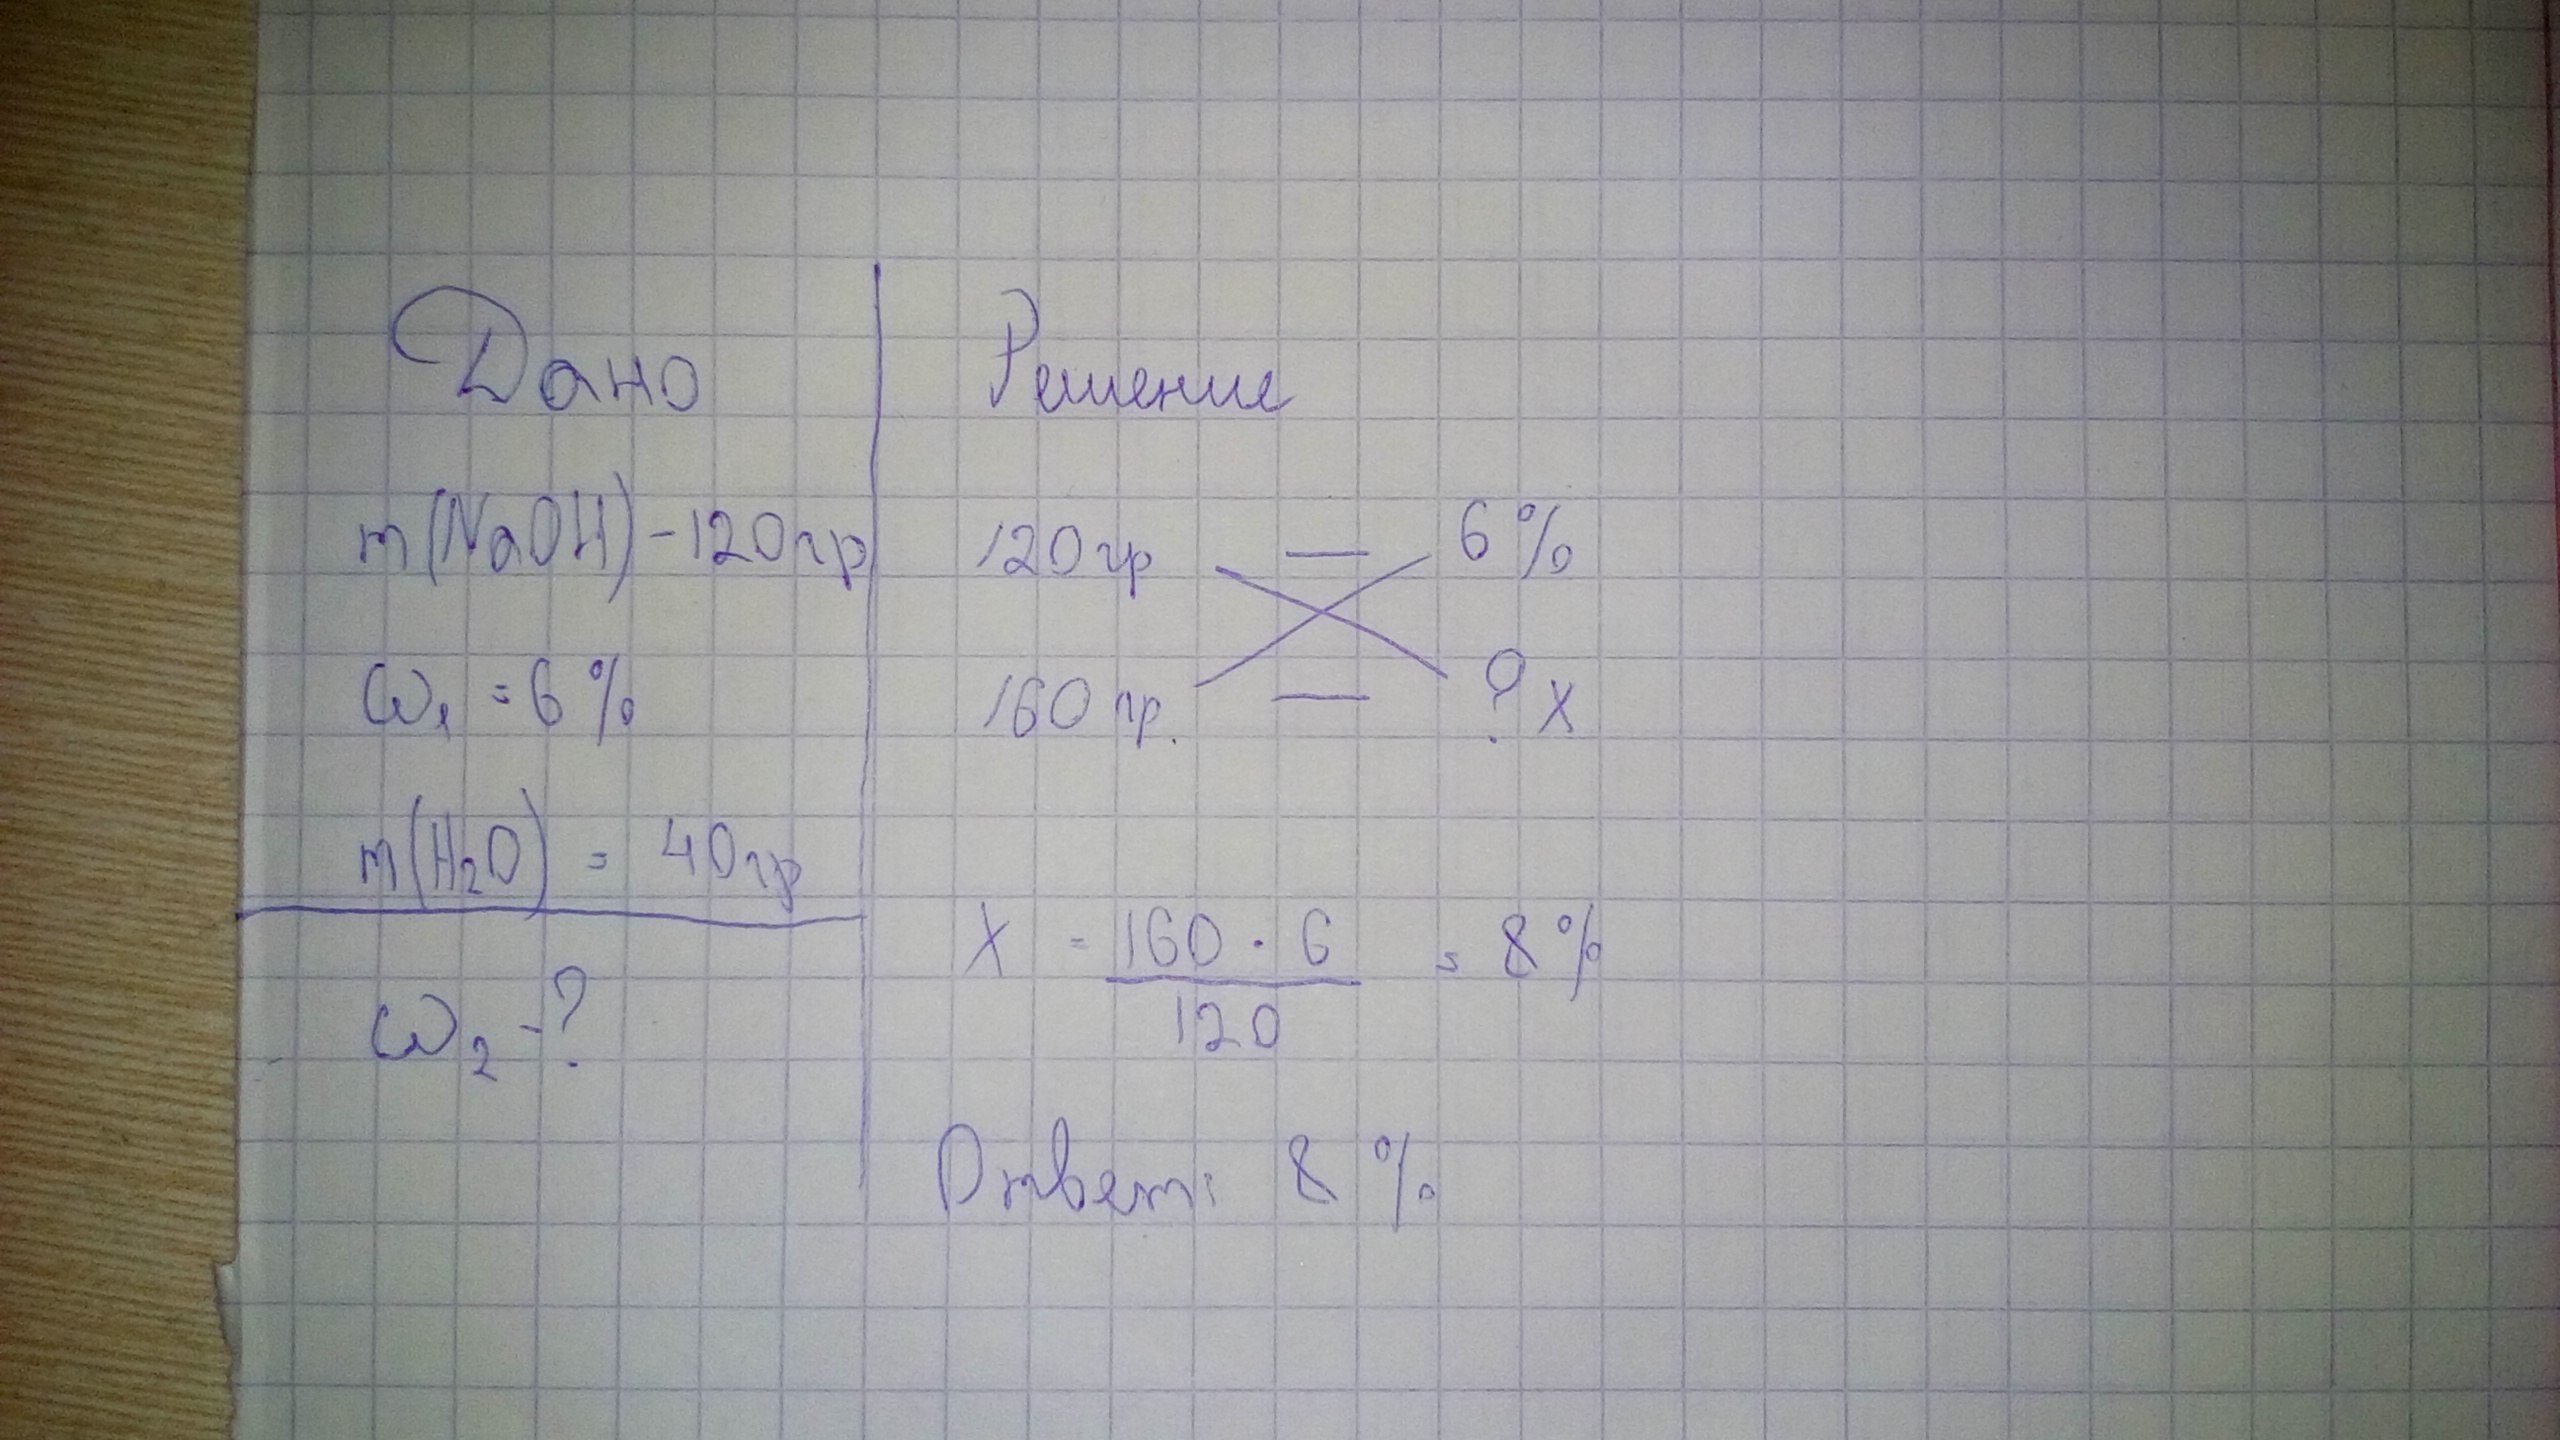 Дано
m(NaOH) - 120 гр
ω₁ = 6 %
m(H₂O) = 40 гр
ω₂ - ?
Решение
120 гр — 6 %
160 гр. — ? x
X = 160 · 6 / 120 = 8 %
Ответ: 8 %